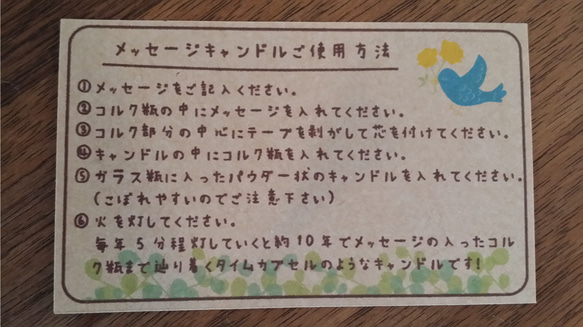 メッセージキャンドルご使用方法
①メッセージをご記入ください。
②コルク瓶の中にメッセージを入れてください。
③コルク部分の中心にテープを剥がして芯を付けてください。
④キャンドルの中にコルク瓶を入れてください。
⑤ガラス瓶に入ったパウダー状のキャンドルを入れてください。
(こぼれやすいのでご注意下さい)
⑥火を灯してください。
毎年5分程灯していくと約10年でメッセージの入ったコル
ク瓶まで辿り着くタイムカプセルのようなキャンドルです!